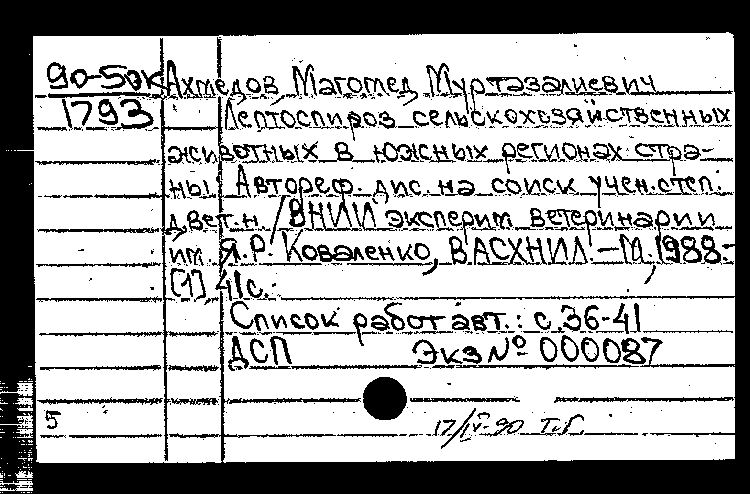 90-50к Ахмедов, Магомед Муртазалиевич
1793 Лептоспироз сельскохозяйственных
животных в южных регионах стра-
ны: Автореф. дис. на соиск. учен. степ.
д.вет.н. / ВНИИ эксперим. ветеринарии
им. Я.Р. Коваленко, ВАСХНИЛ. — М., 1988.-
[1], 41с.
Список работ авт.: с.36-41
ДСП Экз № 000087
5
17/IV-90 Т.Г.